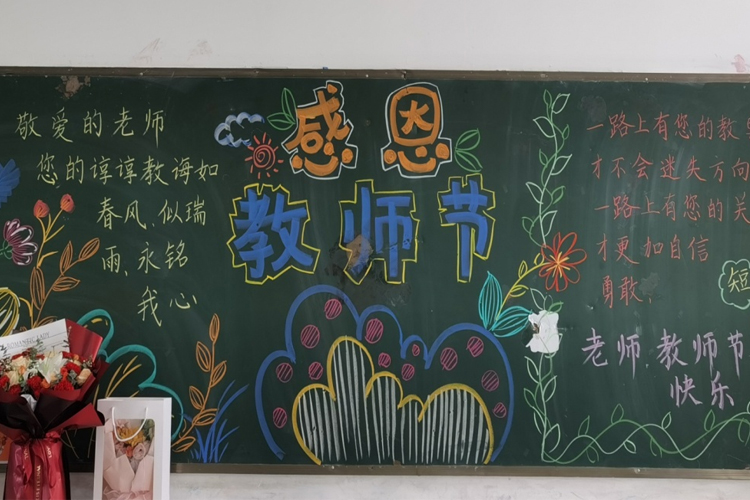 敬爱的老师
您的谆谆教诲如
春风,似瑞
雨,永铭
我心
感恩
教师节
一路上有您的教
才不会迷失方向
一路上有您的关
才更加自信
勇敢,
短
老师,教师节
快乐